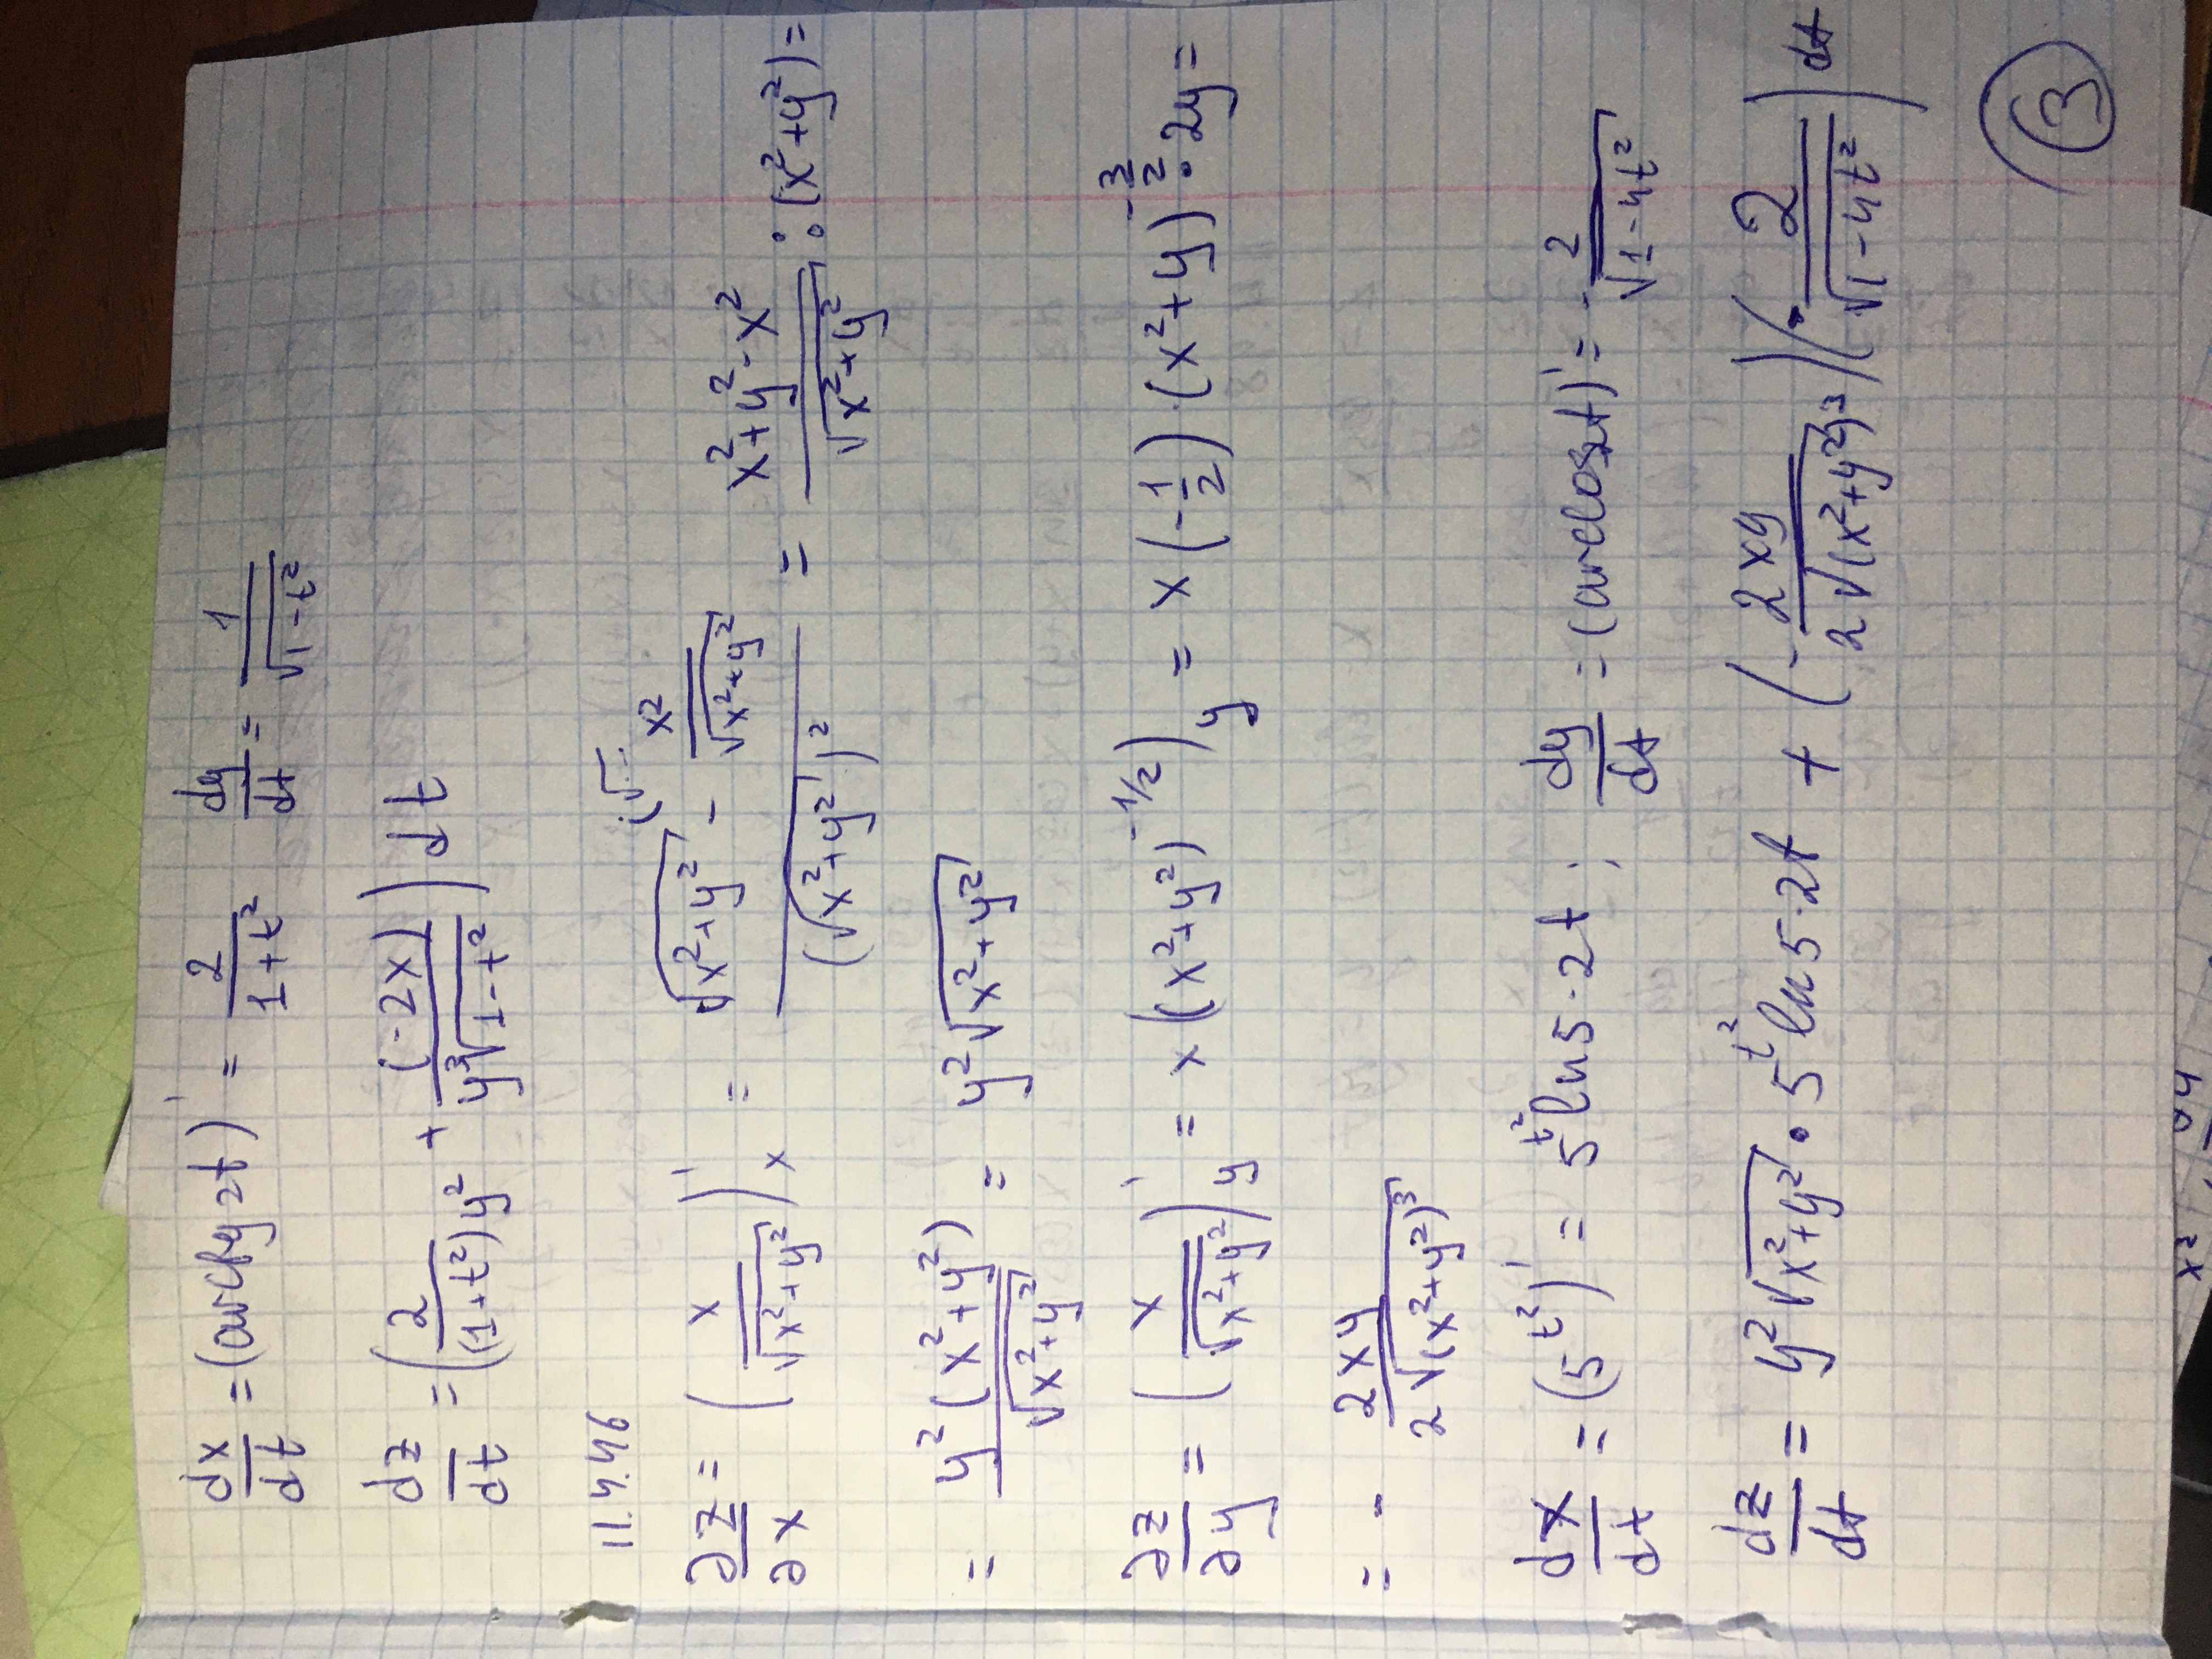 dx/dt = (arctg 2t)' = 2/(1+t²) dy/dt = 1/√(1-t²)
dz/dt = (2/((1+t²)y²) + (-2x)/(y³√(1-t²))) dt
11.4.46
∂z/∂x = (x/√(x²+y²))'ₓ = (√(x²+y²) - x²/√(x²+y²))/(√(x²+y²))² = (x²+y²-x²)/√(x²+y²) : (x²+y²) =
= y²(x²+y²)/√(x²+y²) = y²√(x²+y²)
∂z/∂y = (x/√(x²+y²))'_y = x((x²+y²)^(-1/2))_y = x(-1/2)·(x²+y)^(-3/2)·2y =
= - 2xy/(2√(x²+y²)³)
dx/dt = (5^(t²))' = 5^(t²) ln5·2t ; dy/dt = (arccos2t)' = -2/√(1-4t²)
dz/dt = y²√(x²+y²) · 5^(t²) ln5·2t + (-2xy/(2√(x²+y²)³))(-2/√(1-4t²)) dt
3